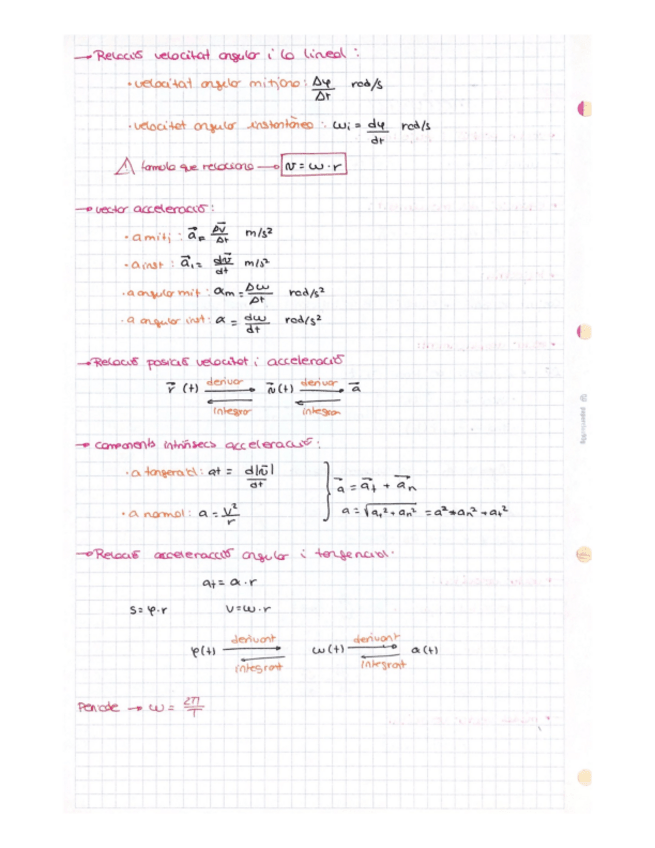 → Relació velocitat angular i la lineal :
· velocitat angular mitjana : Δφ/Δt rad/s
· velocitat angular instantànea : ωi = dφ/dt rad/s
⚠ formula que relaciona → v = ω · r
→ vector acceleració :
· a mitj : a⃗ = Δv⃗/Δt m/s²
· a inst : a⃗i = dv⃗/dt m/s²
· a angular mit : αm = Δω/Δt rad/s²
· a angular inst : α = dω/dt rad/s²
→ Relació posició velocitat i acceleració
r⃗ (t) derivar → v⃗ (t) derivar → a⃗
← integrar ← integrar
→ components intrínsecs acceleració :
· a tangencial : at = d|v⃗|/dt
a⃗ = a⃗t + a⃗n
· a normal : a = v²/r
a = √at² + an² = a² = an² + at²
→ Relació acceleració angular i tangencial.
at = α · r
s = φ · r v = ω · r
φ(t) derivant → ω(t) derivant → α(t)
← integrat ← integrat
Periode → ω = 2π/T